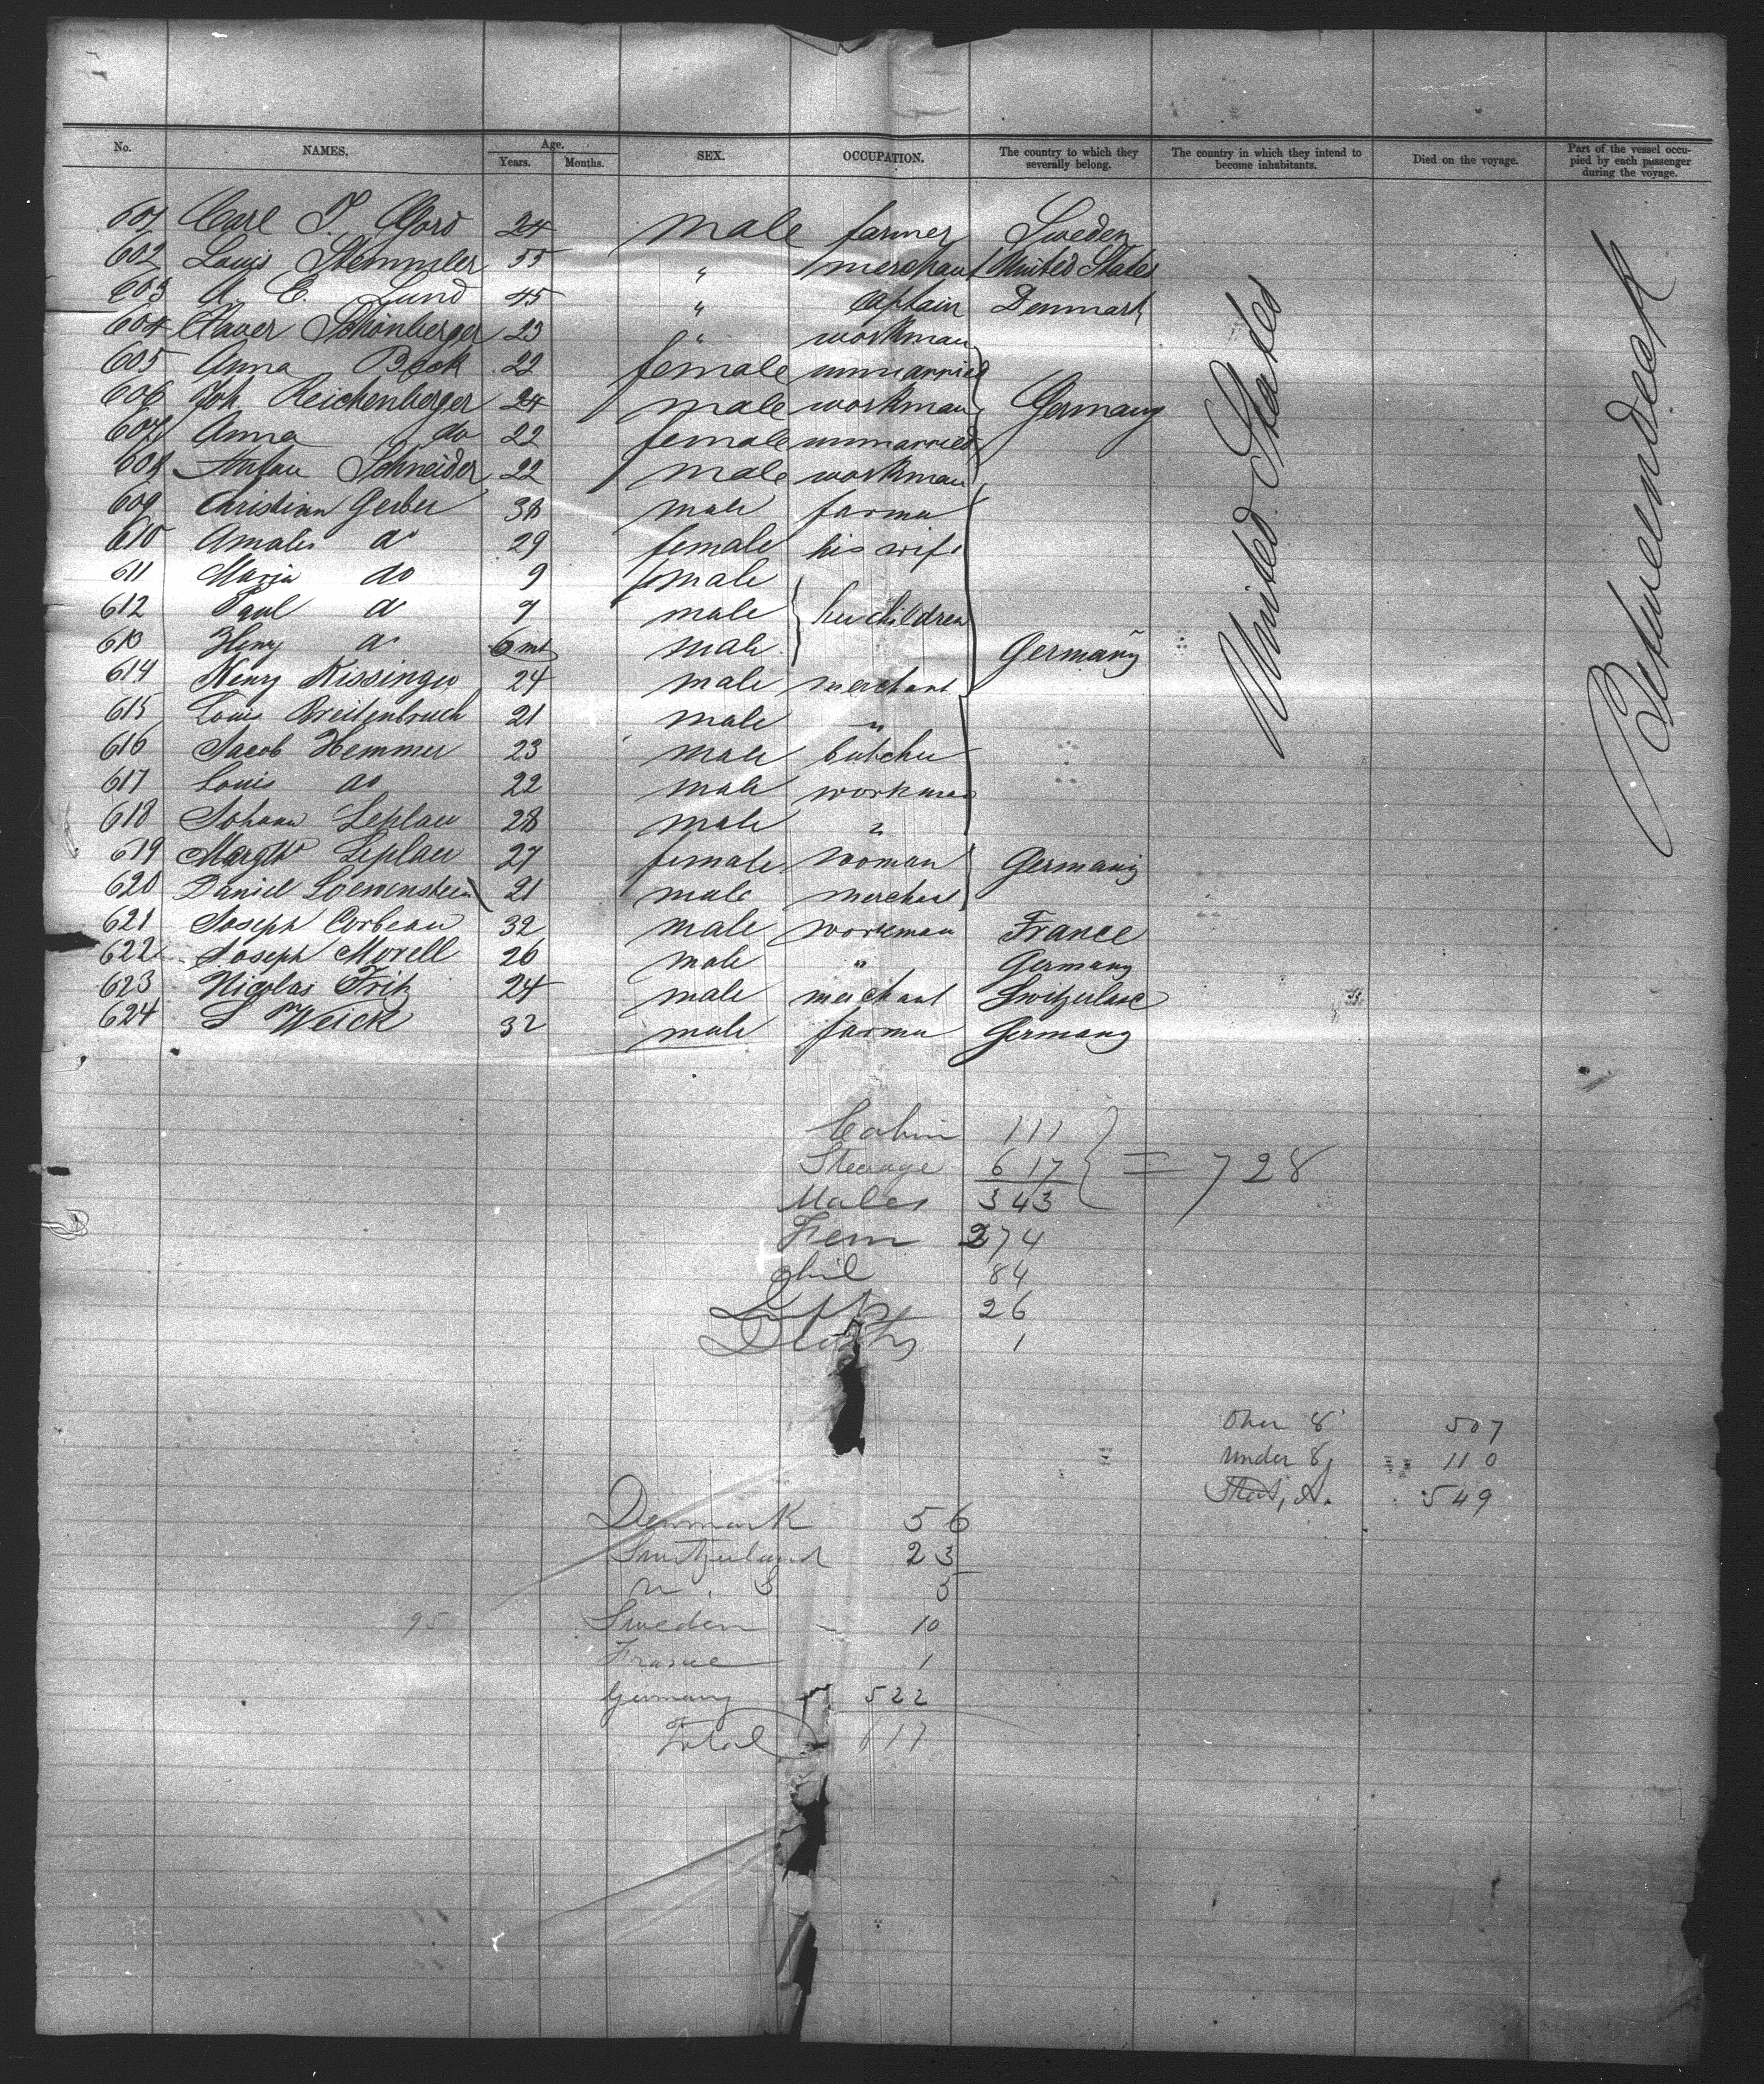 No. NAMES. Age. Years. Months. SEX. OCCUPATION. The country to which they severally belong. The country in which they intend to become inhabitants. Died on the voyage. Part of the vessel occupied by each passenger during the voyage.
601 Carl T. 24 male farmer Sweden
602 Louis Stemmler 55 " merchant United States
603 A. E. Lund 45 " captain Denmark
604 Xaver Schönberger 23 " workman
605 Anna Beck 22 female unmarried
606 Joh. Reichenberger 24 male workman Germany
607 Anna do 22 female unmarried
608 Anton Schneider 22 male workman
609 Christian Gerber 38 male farmer
610 Amalie do 29 female his wife
611 Maria do 9 female
612 Paul do 7 male her children
613 Heny do 6 mt male Germany
614 Henry Kissinger 24 male merchant
615 Louis Breitenbruch 21 male "
616 Jacob Hemmer 23 male butcher
617 Louis do 22 male workman
618 Johann Leplau 28 male "
619 Margth Leplau 27 female woman Germany
620 Daniel Loewenstein 21 male merchant
621 Joseph Corbeau 32 male workman France
622 Joseph Morell 26 male " Germany
623 Nicolas Fritz 24 male merchant Switzerland
624 L Weick 32 male farmer Germany
United States
Betweendeck
Cabin 111
Steerage 617 = 728
Males 343
Fem 274
Chil 84
Inffs 26
Deaths 1
Over 8 507
Under 8 110
549
Denmark 56
Switzerland 23
U. S 5
95 Sweden 10
France 1
Germany 522
Total 617